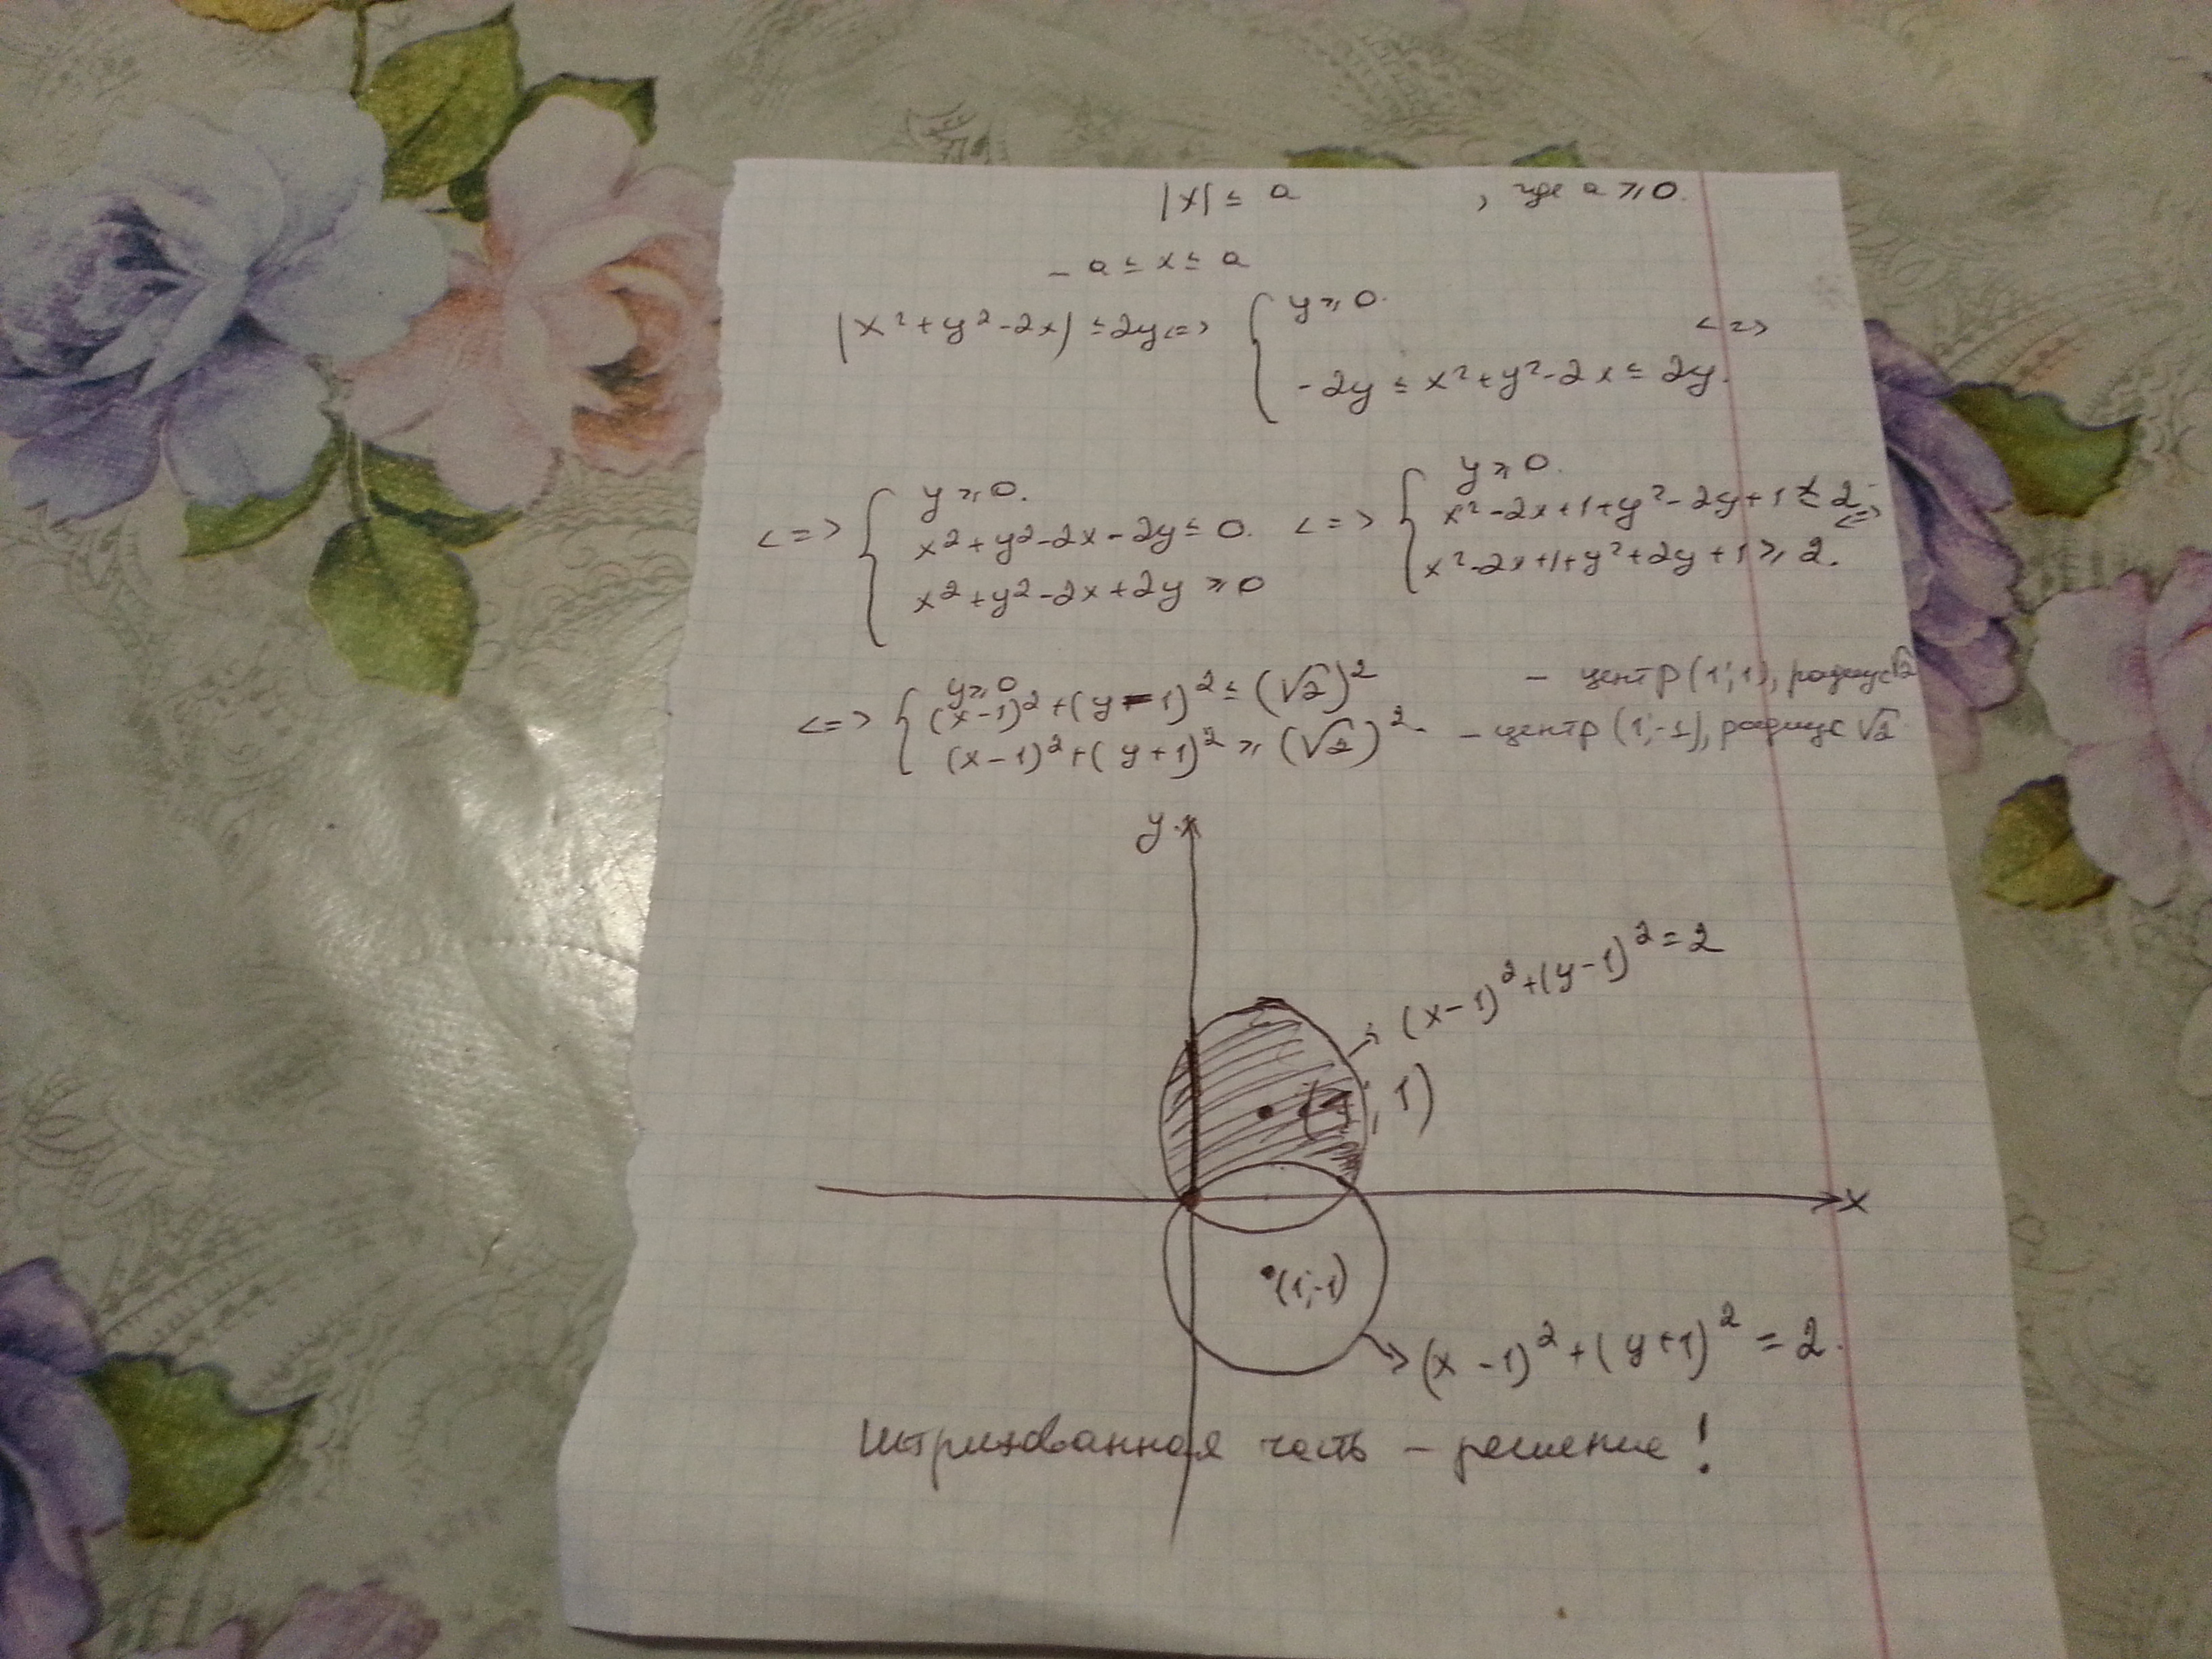 |x| ≤ a , где a ⩾ 0.
- a ≤ x ≤ a
|x²+y²-2x| ≤ 2y <=> { y ⩾ 0. <=>
-2y ≤ x²+y²-2x ≤ 2y.
<=> { y ⩾ 0. <=> { y ⩾ 0.
x²+y²-2x-2y ≤ 0. x²-2x+1+y²-2y+1 ≤ 2 <=>
x²+y²-2x+2y ⩾ 0 x²-2x+1+y²+2y+1 ⩾ 2.
<=> { y ⩾ 0
(x-1)²+(y-1)² ≤ (√2)² - центр (1;1), радиус √2
(x-1)²+(y+1)² ⩾ (√2)² - центр (1;-1), радиус √2
y
(x-1)²+(y-1)²=2
(1;1)
x
(1;-1)
(x-1)²+(y+1)²=2.
Штрихованная часть - решение!